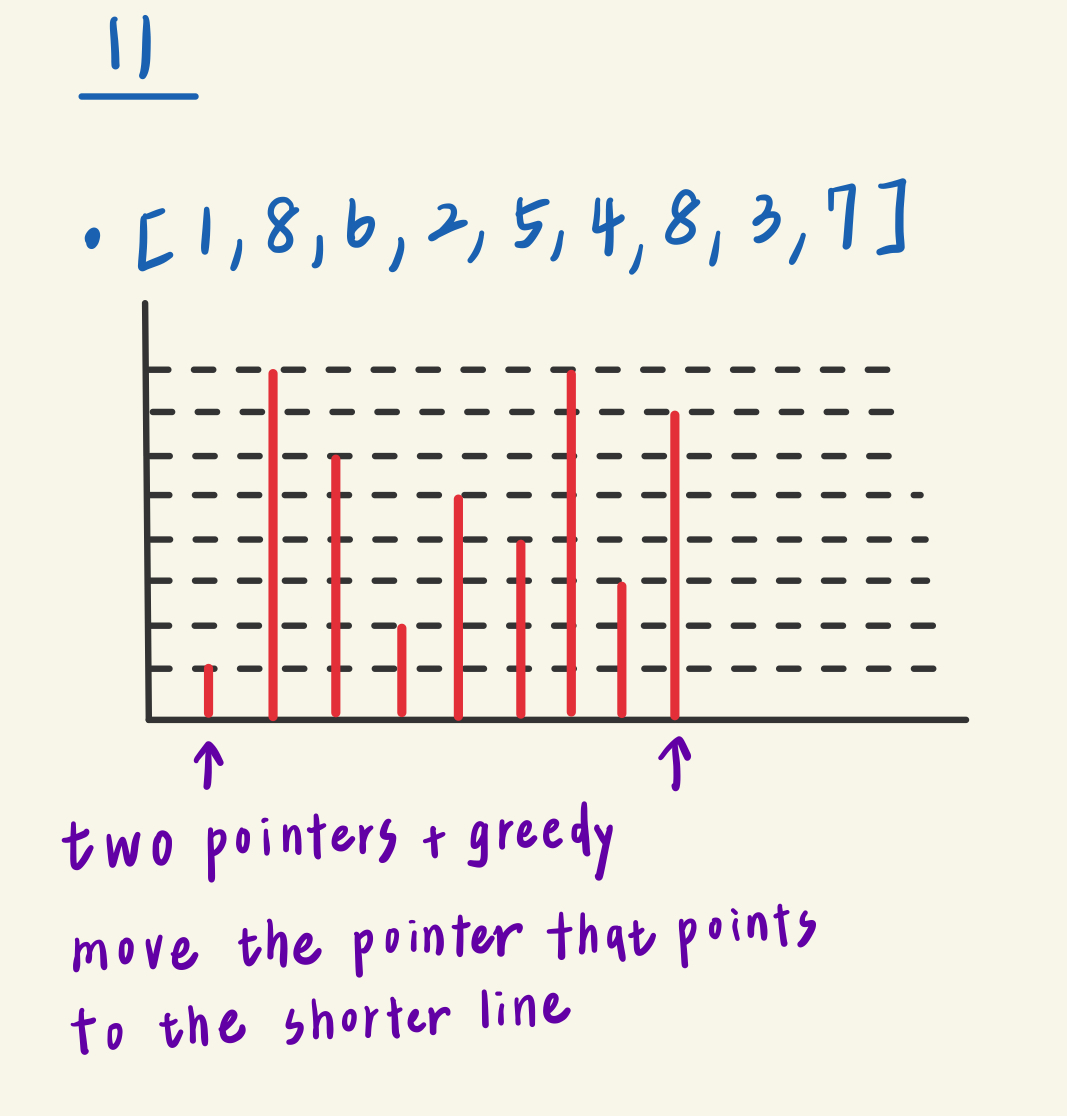 11
• [1, 8, 6, 2, 5, 4, 8, 3, 7]
two pointers + greedy
move the pointer that points
to the shorter line